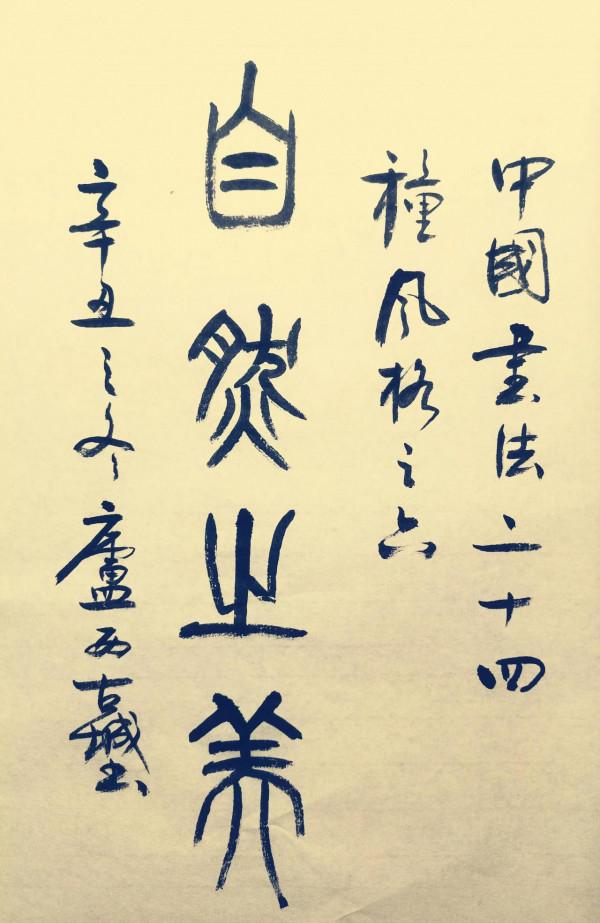 中國書法二十四
種風格之六
自然之美
辛丑之冬廬西古城書